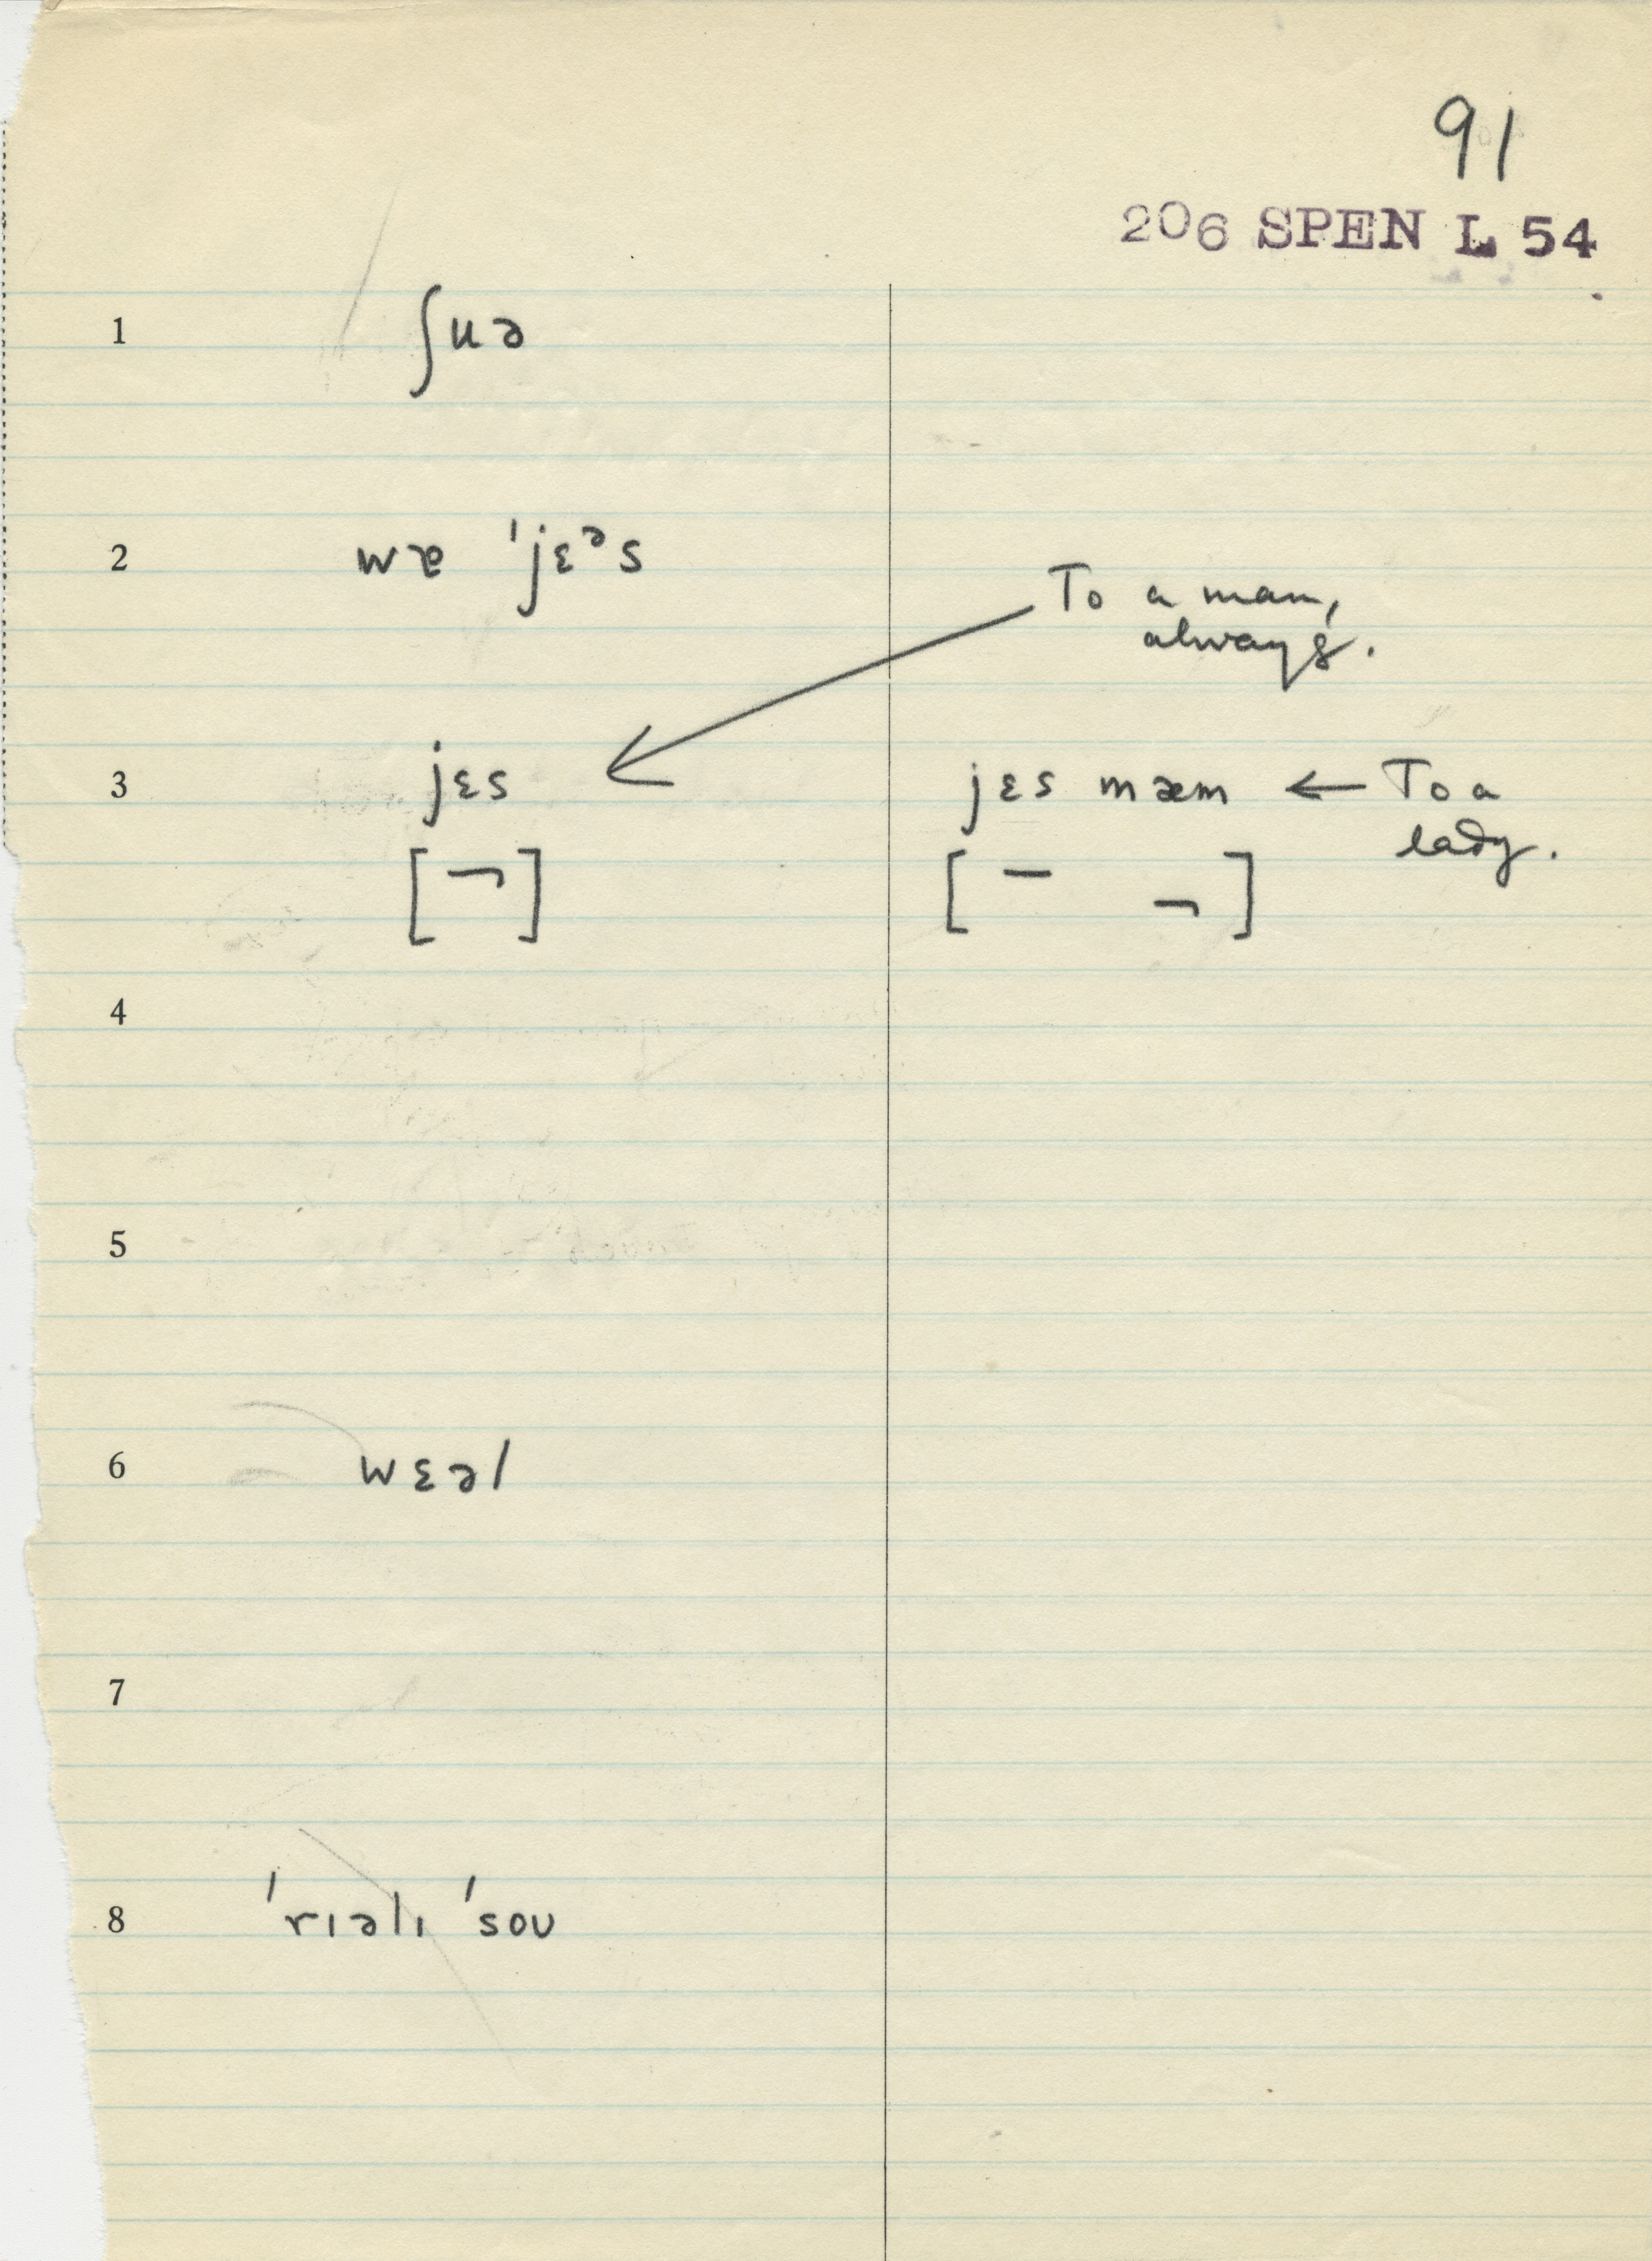 91
206 SPEN L 54
1 ʃuə
2 wɐ ˈjɛᵊs
To a man,
always.
3 jɛs jɛs mæm ← To a
lady.
[ ¬ ] [ – ¬ ]
4
5
6 wɛəl
7
8 ˈrɪəlɪ ˈsoʊ